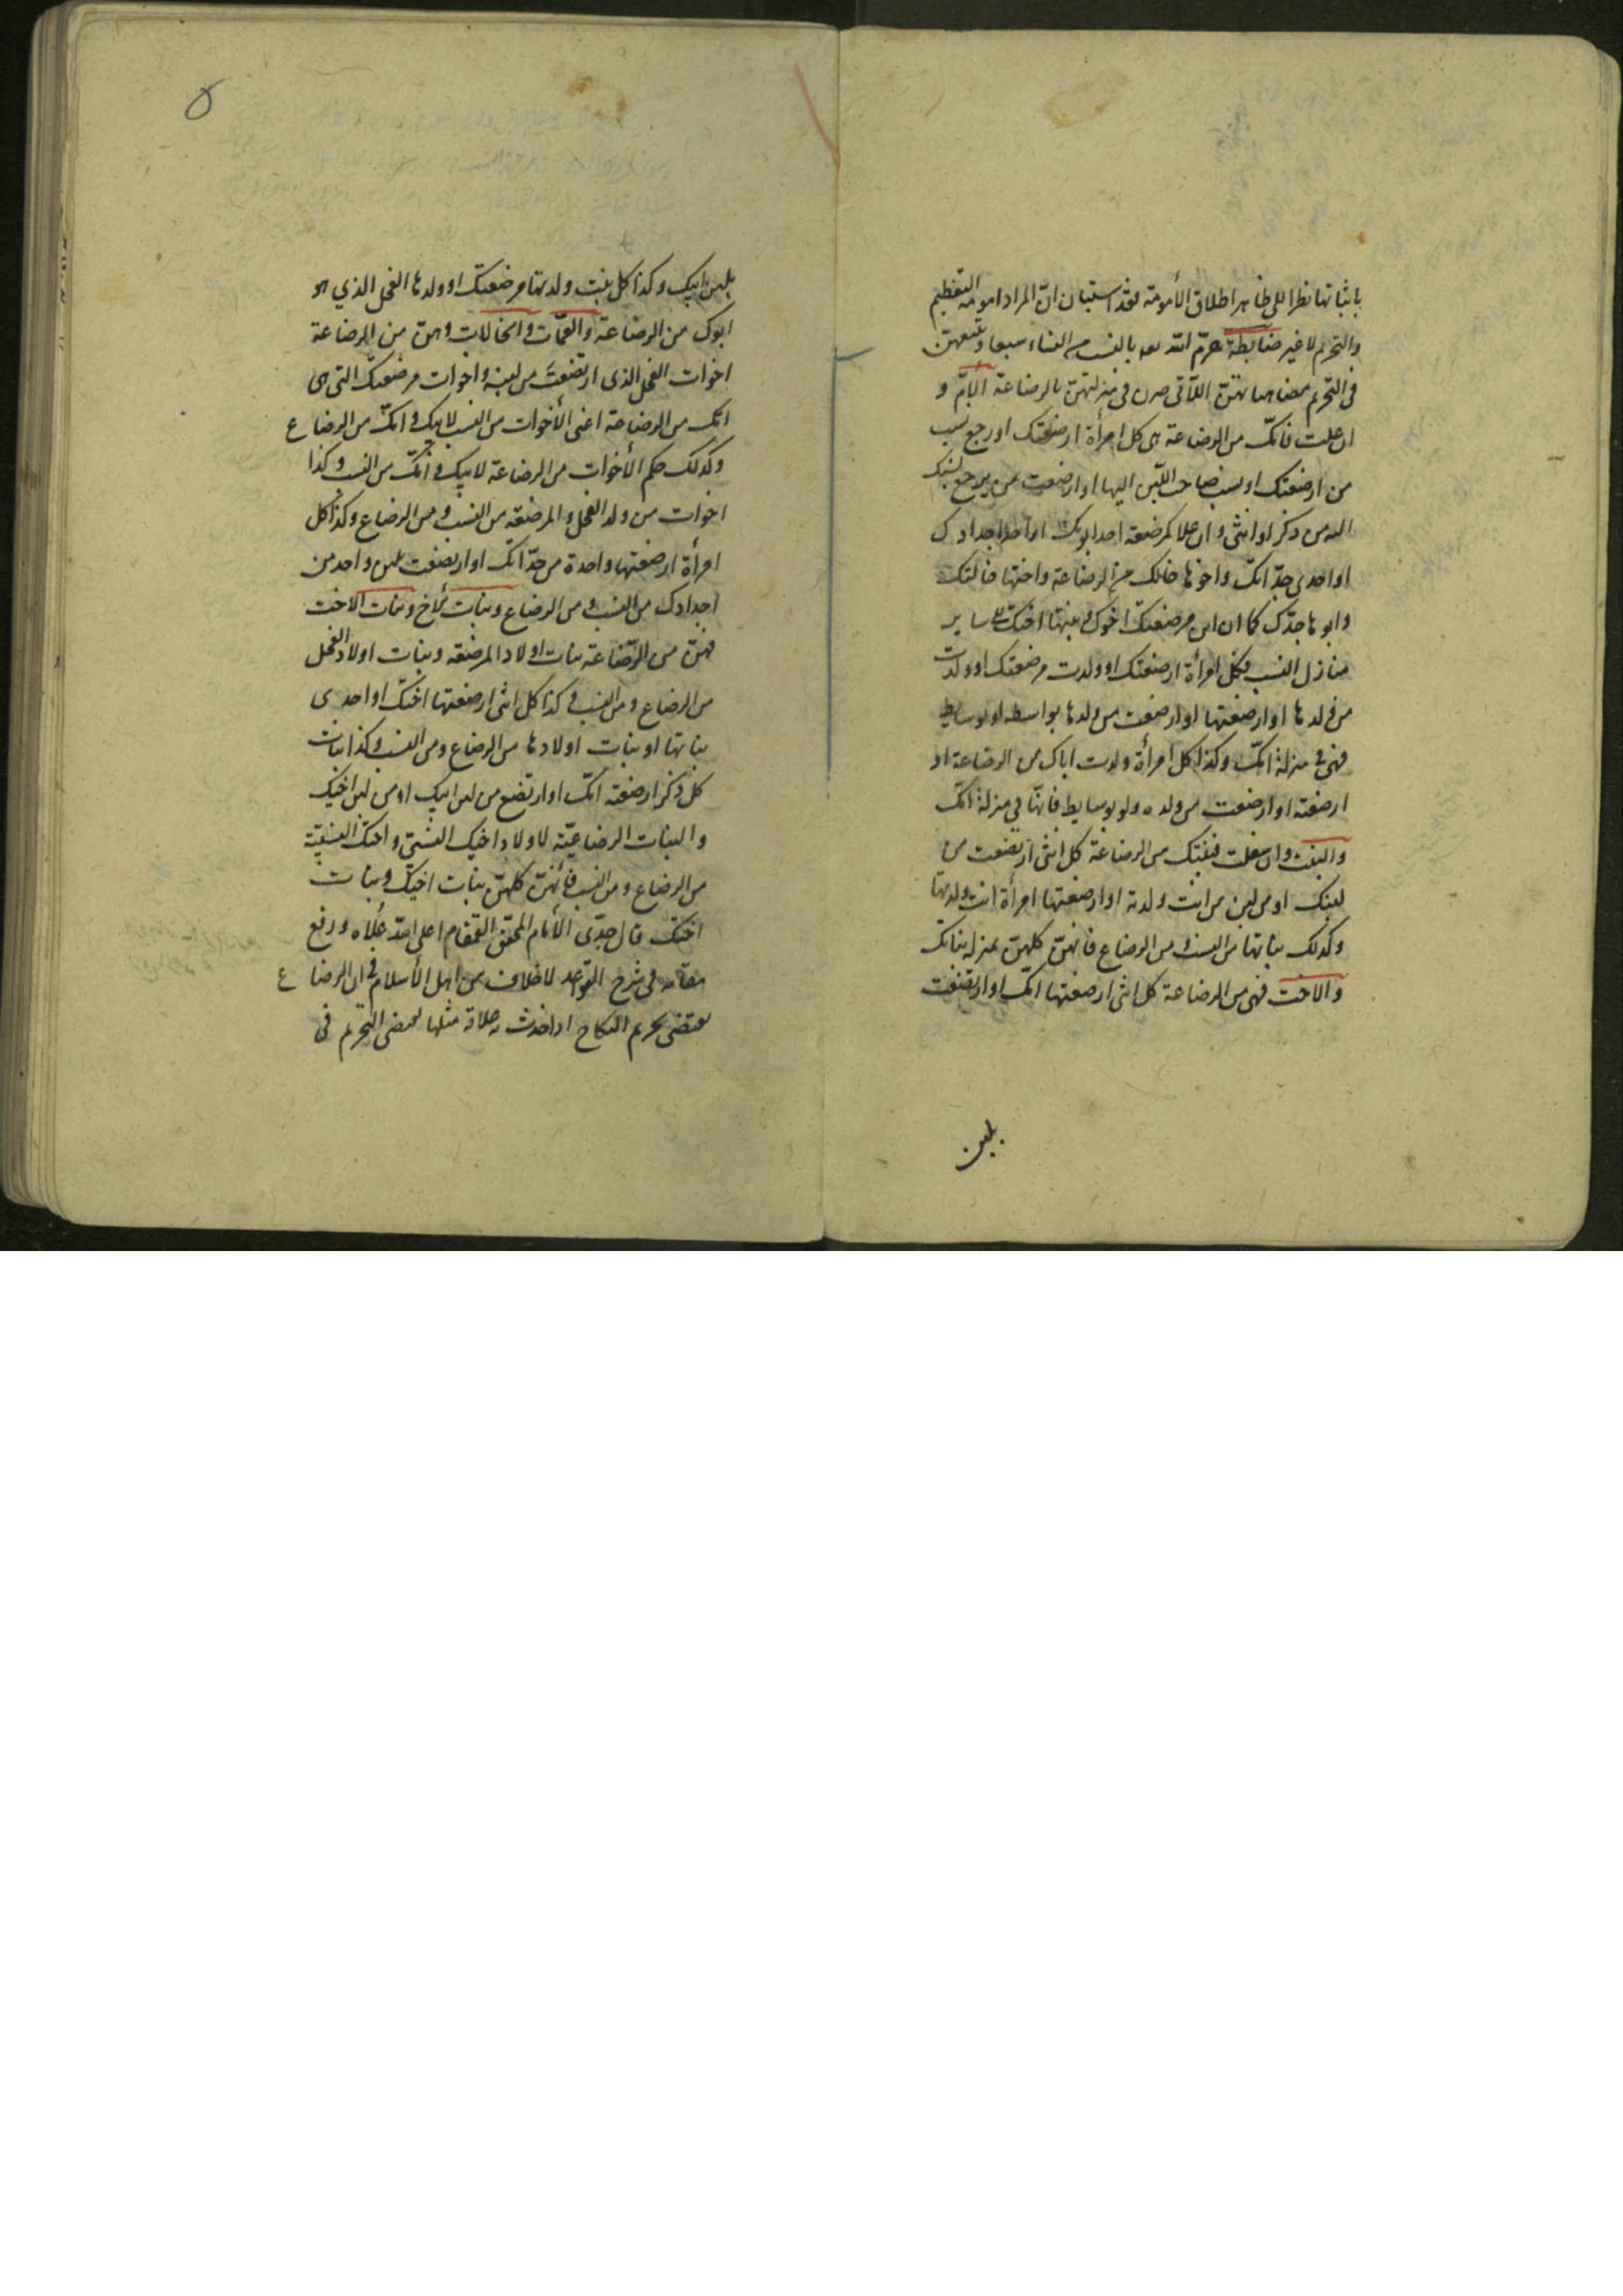 باثباتها نظرا الى ظاهر اطلاق الأمومة فقد استبان انّ المراد امومة التعظيم
والتحريم لا غير ضابطة حرّم الله بالنسب من النساء سبعا
في التحريم اللّاتى صرن في منزلتهنّ بالرضاعة الامّ و
ان علت فامّك من الرضاعة هى كل امرأة ارضعتك او رجع نسب
من ارضعتك او نسب صاحب اللّبن اليها او ارضعت من يرجع نسبك
اليه من ذكر او انثى و ان علا كمرضعة احد ابويك او احد اجدادك
او احدى جدّاتك واخوها خالك من الرضاعة واختها خالتك
وابوها جدّك كما ان ابن مرضعتك اخوك وبنتها اختك الى ساير
منازل النسب فكل امرأة ارضعتك او ولدت مرضعتك او ولدت
من ولدها او ارضعتها او ارضعت من ولدها بواسطه او بوسايط
فهى في منزلة امّك وكذا كل امرأة ولدت اباك من الرضاعة او
ارضعته او ارضعت من ولده ولو بوسايط فانّها في منزلة امّك
والبنت وان سفلت فبنتك من الرضاعة كل انثى ارتضعت من
لبنك او من لبن من انت ولدته او ارضعتها امرأة انت ولدتها
وكذلك بناتها من النسب و من الرضاع فانهنّ كلهنّ بمنزلة بناتك
والاخت فهى من الرضاعة كل انثى ارضعتها امّك او ارتضعت
بلبن
٥
بلبن ابيك وكذا كل بنت ولدتها مرضعتك او ولدها الفحل الذي هو
ابوك من الرضاعة والعمّات والخالات وهنّ من الرضاعة
اخوات الفحل الذى ارتضعت من لبنه واخوات مرضعتك التى هى
امّك من الرضاعة اعنى الأخوات من النسب لابيك و امّك من الرضاع
وكذلك حكم الأخوات من الرضاعة لابيك و امّك من النسب وكذا
اخوات من ولد الفحل والمرضعة من النسب و من الرضاع وكذا كل
امرأة ارضعتها واحدة من جدّاتك او ارتضعت بلبن واحد من
اجدادك من النسب و من الرضاع وبنات الاخ وبنات الاخت
فهنّ من الرّضاعة بنات اولاد المرضعه وبنات اولاد الفحل
من الرضاع و من النسب وكذا كل انثى ارضعتها اختك او احدى
بناتها او بنات اولادها من الرضاع ومن النسب وكذا بنات
كل ذكر ارضعته امّك او ارتضع من لبن ابيك او من لبن اخيك
والبنات الرضاعيّة لاولاد اخيك النسبىّ واختك النسبيّة
من الرضاع و من النسب فانّهنّ كلهنّ بنات اخيك وبنات
اختك قال جدّى الأمام المحقق القمقام اعلى الله علاه ورفع
مقامه في شرح القواعد لا خلاف بين اهل الأسلام في ان الرضاع
يقتضى تحريم النكاح اذا حدث به علاقة مثلها يقتضى التحريم في